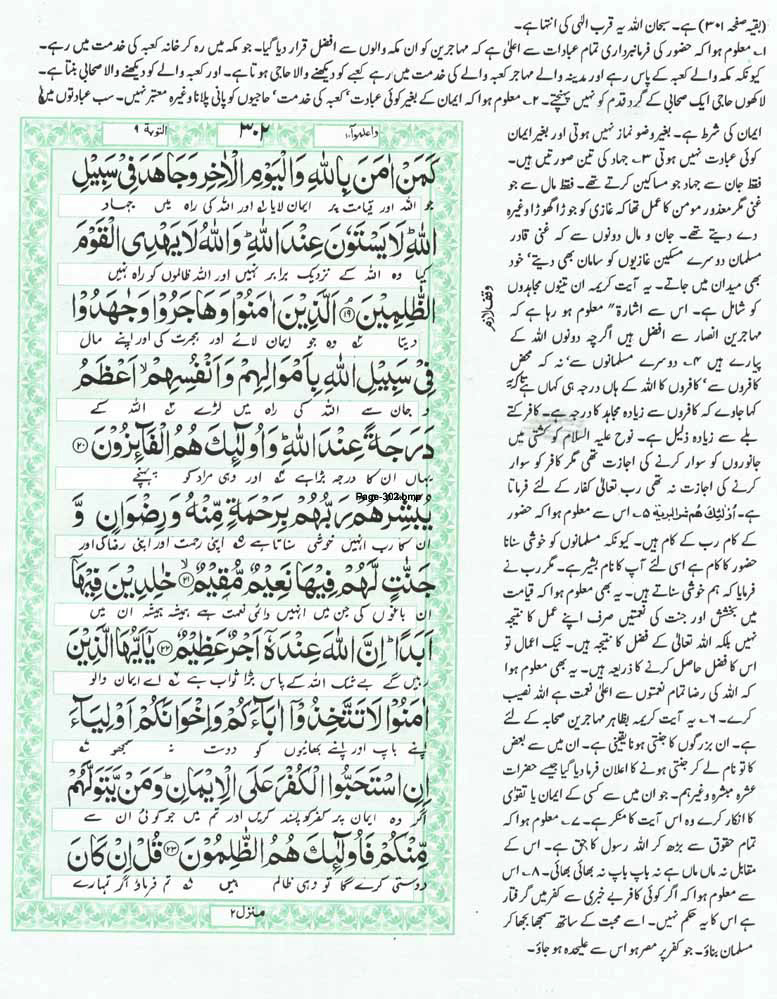 (بقیہ صفحہ ۳۰۱) ہے۔ سبحان اللہ یہ قرب الٰہی کی انتہا ہے۔
۱۔ معلوم ہوا کہ حضور کی فرمانبرداری تمام عبادات سے اعلیٰ ہے کہ مہاجرین کو ان مکہ والوں سے افضل قرار دیا گیا۔ جو مکہ میں رہ کر خانہ کعبہ کی خدمت میں رہے۔
کیونکہ مکہ والے کعبہ کے پاس رہے اور مدینہ والے مہاجر کعبہ والے کی خدمت میں رہے کعبے کو دیکھنے والا حاجی ہوتا ہے۔ اور کعبہ والے کو دیکھنے والا صحابی بنتا ہے۔
لاکھوں حاجی ایک صحابی کے گرد قدم کو نہیں پہنچتے۔ ۲۔ معلوم ہوا کہ ایمان کے بغیر کوئی عبادت ’کعبہ کی خدمت‘ حاجیوں کو پانی پلانا وغیرہ معتبر نہیں۔ سب عبادتوں میں
ایمان کی شرط ہے۔ بغیر وضو نماز نہیں ہوتی اور بغیر ایمان
کوئی عبادت نہیں ہوتی ۳۔ جہاد کی تین صورتیں ہیں۔
فقط جان سے جہاد جو مساکین کرتے تھے۔ فقط مال سے جو
غنی مگر معذور مومن کا عمل تھا کہ غازی کو جوڑا گھوڑا وغیرہ
دے دیتے تھے۔ جان و مال دونوں سے کہ غنی قادر
مسلمان دوسرے مسکین غازیوں کو سامان بھی دیتے‘ خود
بھی میدان میں جاتے۔ یہ آیت کریمہ ان تینوں مجاہدوں
کو شامل ہے۔ اس سے اشارۃً معلوم ہو رہا ہے کہ
مہاجرین انصار سے افضل ہیں اگرچہ دونوں اللہ کے
پیارے ہیں ۴۔ دوسرے مسلمانوں سے‘ نہ کہ محض
کافروں سے‘ کافروں کا اللہ کے ہاں درجہ ہی کہاں ہے تاکہ
کہا جاوے کہ کافروں سے زیادہ مجاہد کا درجہ ہے۔ کافر کتے
بلے سے زیادہ ذلیل ہے۔ نوح علیہ السلام کو کشتی میں
جانوروں کو سوار کرنے کی اجازت تھی مگر کافر کو سوار
کرنے کی اجازت نہ تھی رب تعالیٰ کفار کے لئے فرماتا
ہے۔ اُولٰٓئِکَ ھُمْ شَرُّ الْبَرِیَّۃِ ۵۔ اس سے معلوم ہوا کہ حضور
کے کام رب کے کام ہیں۔ کیونکہ مسلمانوں کو خوشی سنانا
حضور کا کام ہے اسی لئے آپ کا نام بشیر ہے۔ مگر رب نے
فرمایا کہ ہم خوشی سناتے ہیں۔ یہ بھی معلوم ہوا کہ قیامت
میں بخشش اور جنت کی نعمتیں صرف اپنے عمل کا نتیجہ
نہیں بلکہ اللہ تعالیٰ کے فضل کا نتیجہ ہیں۔ نیک اعمال تو
اس کا فضل حاصل کرنے کا ذریعہ ہیں۔ یہ بھی معلوم ہوا
کہ اللہ کی رضا تمام نعمتوں سے اعلیٰ نعمت ہے اللہ نصیب
کرے۔ ۶۔ یہ آیت کریمہ بظاہر مہاجرین صحابہ کے لئے
ہے۔ ان بزرگوں کا جنتی ہونا یقینی ہے۔ ان میں سے بعض
کا تو نام لے کر جنتی ہونے کا اعلان فرما دیا گیا جیسے حضرات
عشرہ مبشرہ وغیرہم۔ جو ان میں سے کسی کے ایمان یا تقوٰی
کا انکار کرے وہ اس آیت کا منکر ہے۔ ۷۔ معلوم ہوا کہ
تمام حقوق سے بڑھ کر اللہ رسول کا حق ہے۔ اس کے
مقابل نہ ماں ماں ہے نہ باپ باپ نہ بھائی بھائی۔ ۸۔ اس
سے معلوم ہوا کہ اگر کوئی کافر بے خبری سے کفر میں گرفتار
ہے اس کا یہ حکم نہیں۔ اسے محبت کے ساتھ سمجھا بجھا کر
مسلمان بناؤ۔ جو کفر پر مصر ہو اس سے علیحدہ ہو جاؤ۔
وقف لازم
التوبۃ ۹
۳۰۲
واعلموا ۱۰
كَمَنْ اٰمَنَ بِاللّٰهِ وَالْيَوْمِ الْاٰخِرِ وَجَاهَدَ فِيْ سَبِيْلِ
جو اللہ اور قیامت پر ایمان لایا اور اللہ کی راہ میں جہاد
اللّٰهِ ؕ لَا يَسْتَوٗنَ عِنْدَ اللّٰهِ ؕ وَاللّٰهُ لَا يَهْدِي الْقَوْمَ
کیا وہ اللہ کے نزدیک برابر نہیں اور اللہ ظالموں کو راہ نہیں
الظّٰلِمِيْنَ ۘ ۱۹ اَلَّذِيْنَ اٰمَنُوْا وَهَاجَرُوْا وَجٰهَدُوْا
دیتا وہ جو ایمان لائے اور ہجرت کی اور اپنے مال
فِيْ سَبِيْلِ اللّٰهِ بِاَمْوَالِهِمْ وَاَنْفُسِهِمْ ۙ اَعْظَمُ
و جان سے اللہ کی راہ میں لڑے اللہ کے
دَرَجَةً عِنْدَ اللّٰهِ ؕ وَاُولٰٓئِكَ هُمُ الْفَآئِزُوْنَ ۲۰
یہاں ان کا درجہ بڑا ہے اور وہی مراد کو پہنچے
Page-302.bmp
يُبَشِّرُهُمْ رَبُّهُمْ بِرَحْمَةٍ مِّنْهُ وَرِضْوَانٍ وَّ
ان کا رب انہیں خوشی سناتا ہے اپنی رحمت اور اپنی رضا کی اور
جَنّٰتٍ لَّهُمْ فِيْهَا نَعِيْمٌ مُّقِيْمٌ ۙ ۲۱ خٰلِدِيْنَ فِيْهَآ
ان باغوں کی جن میں انہیں دائمی نعمت ہے ہمیشہ ہمیشہ ان میں
اَبَدًا ؕ اِنَّ اللّٰهَ عِنْدَهٗٓ اَجْرٌ عَظِيْمٌ ۲۲ يٰٓاَيُّهَا الَّذِيْنَ
رہیں گے بے شک اللہ کے پاس بڑا ثواب ہے اے ایمان والو
اٰمَنُوْا لَا تَتَّخِذُوْٓا اٰبَآءَكُمْ وَاِخْوَانَكُمْ اَوْلِيَآءَ
اپنے باپ اور اپنے بھائیوں کو دوست نہ سمجھو
اِنِ اسْتَحَبُّوا الْكُفْرَ عَلَى الْاِيْمَانِ ؕ وَمَنْ يَّتَوَلَّهُمْ
اگر وہ ایمان پر کفر کو پسند کریں اور تم میں جو کوئی ان سے
مِّنْكُمْ فَاُولٰٓئِكَ هُمُ الظّٰلِمُوْنَ ۲۳ قُلْ اِنْ كَانَ
دوستی کرے گا تو وہی ظالم ہیں تم فرماؤ اگر تمہارے
منزل ۲